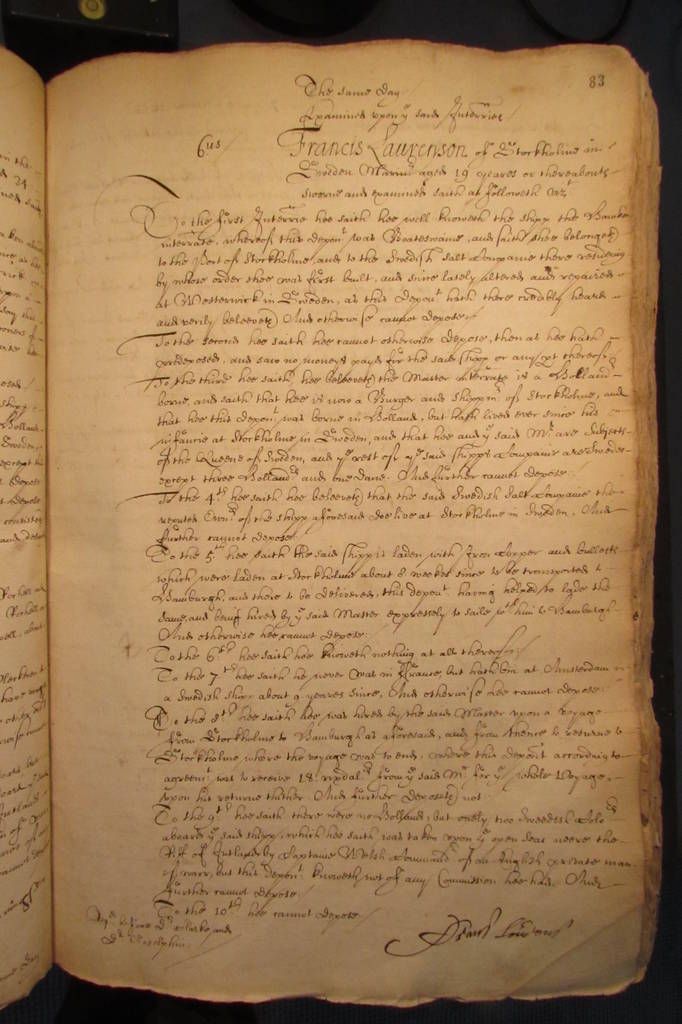 83
The same day
Examined upon ye said Interries
6us Francis Laurenson of Stockholme in
Sweden Marinr aged 19 yeares or thereabouts
sworne and examined saith as followeth vizt
To the first Interrie hee saith hee well knoweth the shipp the
interrate, whereof this deponr was Boateswaine, and saith shee belonged
to the Port of Stockholme, and to the Swedish Salt Companie there residing
by whose order shee was first built, and since lately altered and repaired
at Westerwick in Sweden, as this deponr hath there credibly heard
and verily beleeveth And otherwise cannot depose
To the second hee saith hee cannot otherwise depose, then as hee hath
predeposed, and saw no moneys payd for the said shipp or any pt thereof
To the third hee saith, hee beleeveth the Master interrate is a Holland
borne, and saith that hee is now a Burger and of Stockholme, and
that hee this deponr was borne in Holland, but hath lived ever since his
infancie at Stockholme in Sweden, and that hee and ye said Mr are Subjects
of the Queene of Sweden, and ye rest of ye said shipps Companie are Swedes
except three Hollandrs and one Dane. And further cannot depose
To the 4th hee saith hee beleeveth that the said Swedish Salt Companie the
reputed Ownrs of the shipp aforesaid doe live at Stockholme in Sweden, And
further cannot depose
To the 5th hee saith the said shipp is laden with Iron Copper and bulletts
which were laden at Stockholme about 8 weekes since to be transported to
Hamburgh, and there to be delivered, this deponr having helped to lade the
same, and being hired by ye said Master expressely to saile wth him to Hamburgh
And otherwise hee cannot depose
To the 6th hee saith hee knoweth nothing at all thereof
To the 7th hee saith he never was in France, but hath bin at Amsterdam in
a Swedish shipp about 2 yeares since, And otherwise hee cannot depose
To the 8th hee saith hee was hired by the said Master upon a voyage
from Stockholme to Hamburgh as aforesaid, and from thence to returne to
Stockholme where the voyage was to end, where this deponr according to
agreemt was to receive 18 from ye said Mr for ye whole Voyage,
upon his returne thither And further deposeth not
To the 9th hee saith there were no Holland, but onely two Sweedish
aboard ye said shipp, which hee saith was taken upon ye open seas neere the
Riff of Jutland by Captaine Welsh Commandr of an English private man
of warr, but this deponr knoweth not of any Commission hee had. And
further cannot depose
To the 10th hee cannot depose
before Dr Clarke, and
Dr Godolphin